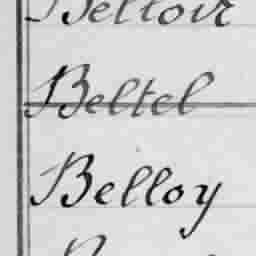 Beltoir
Beltel
Belloy